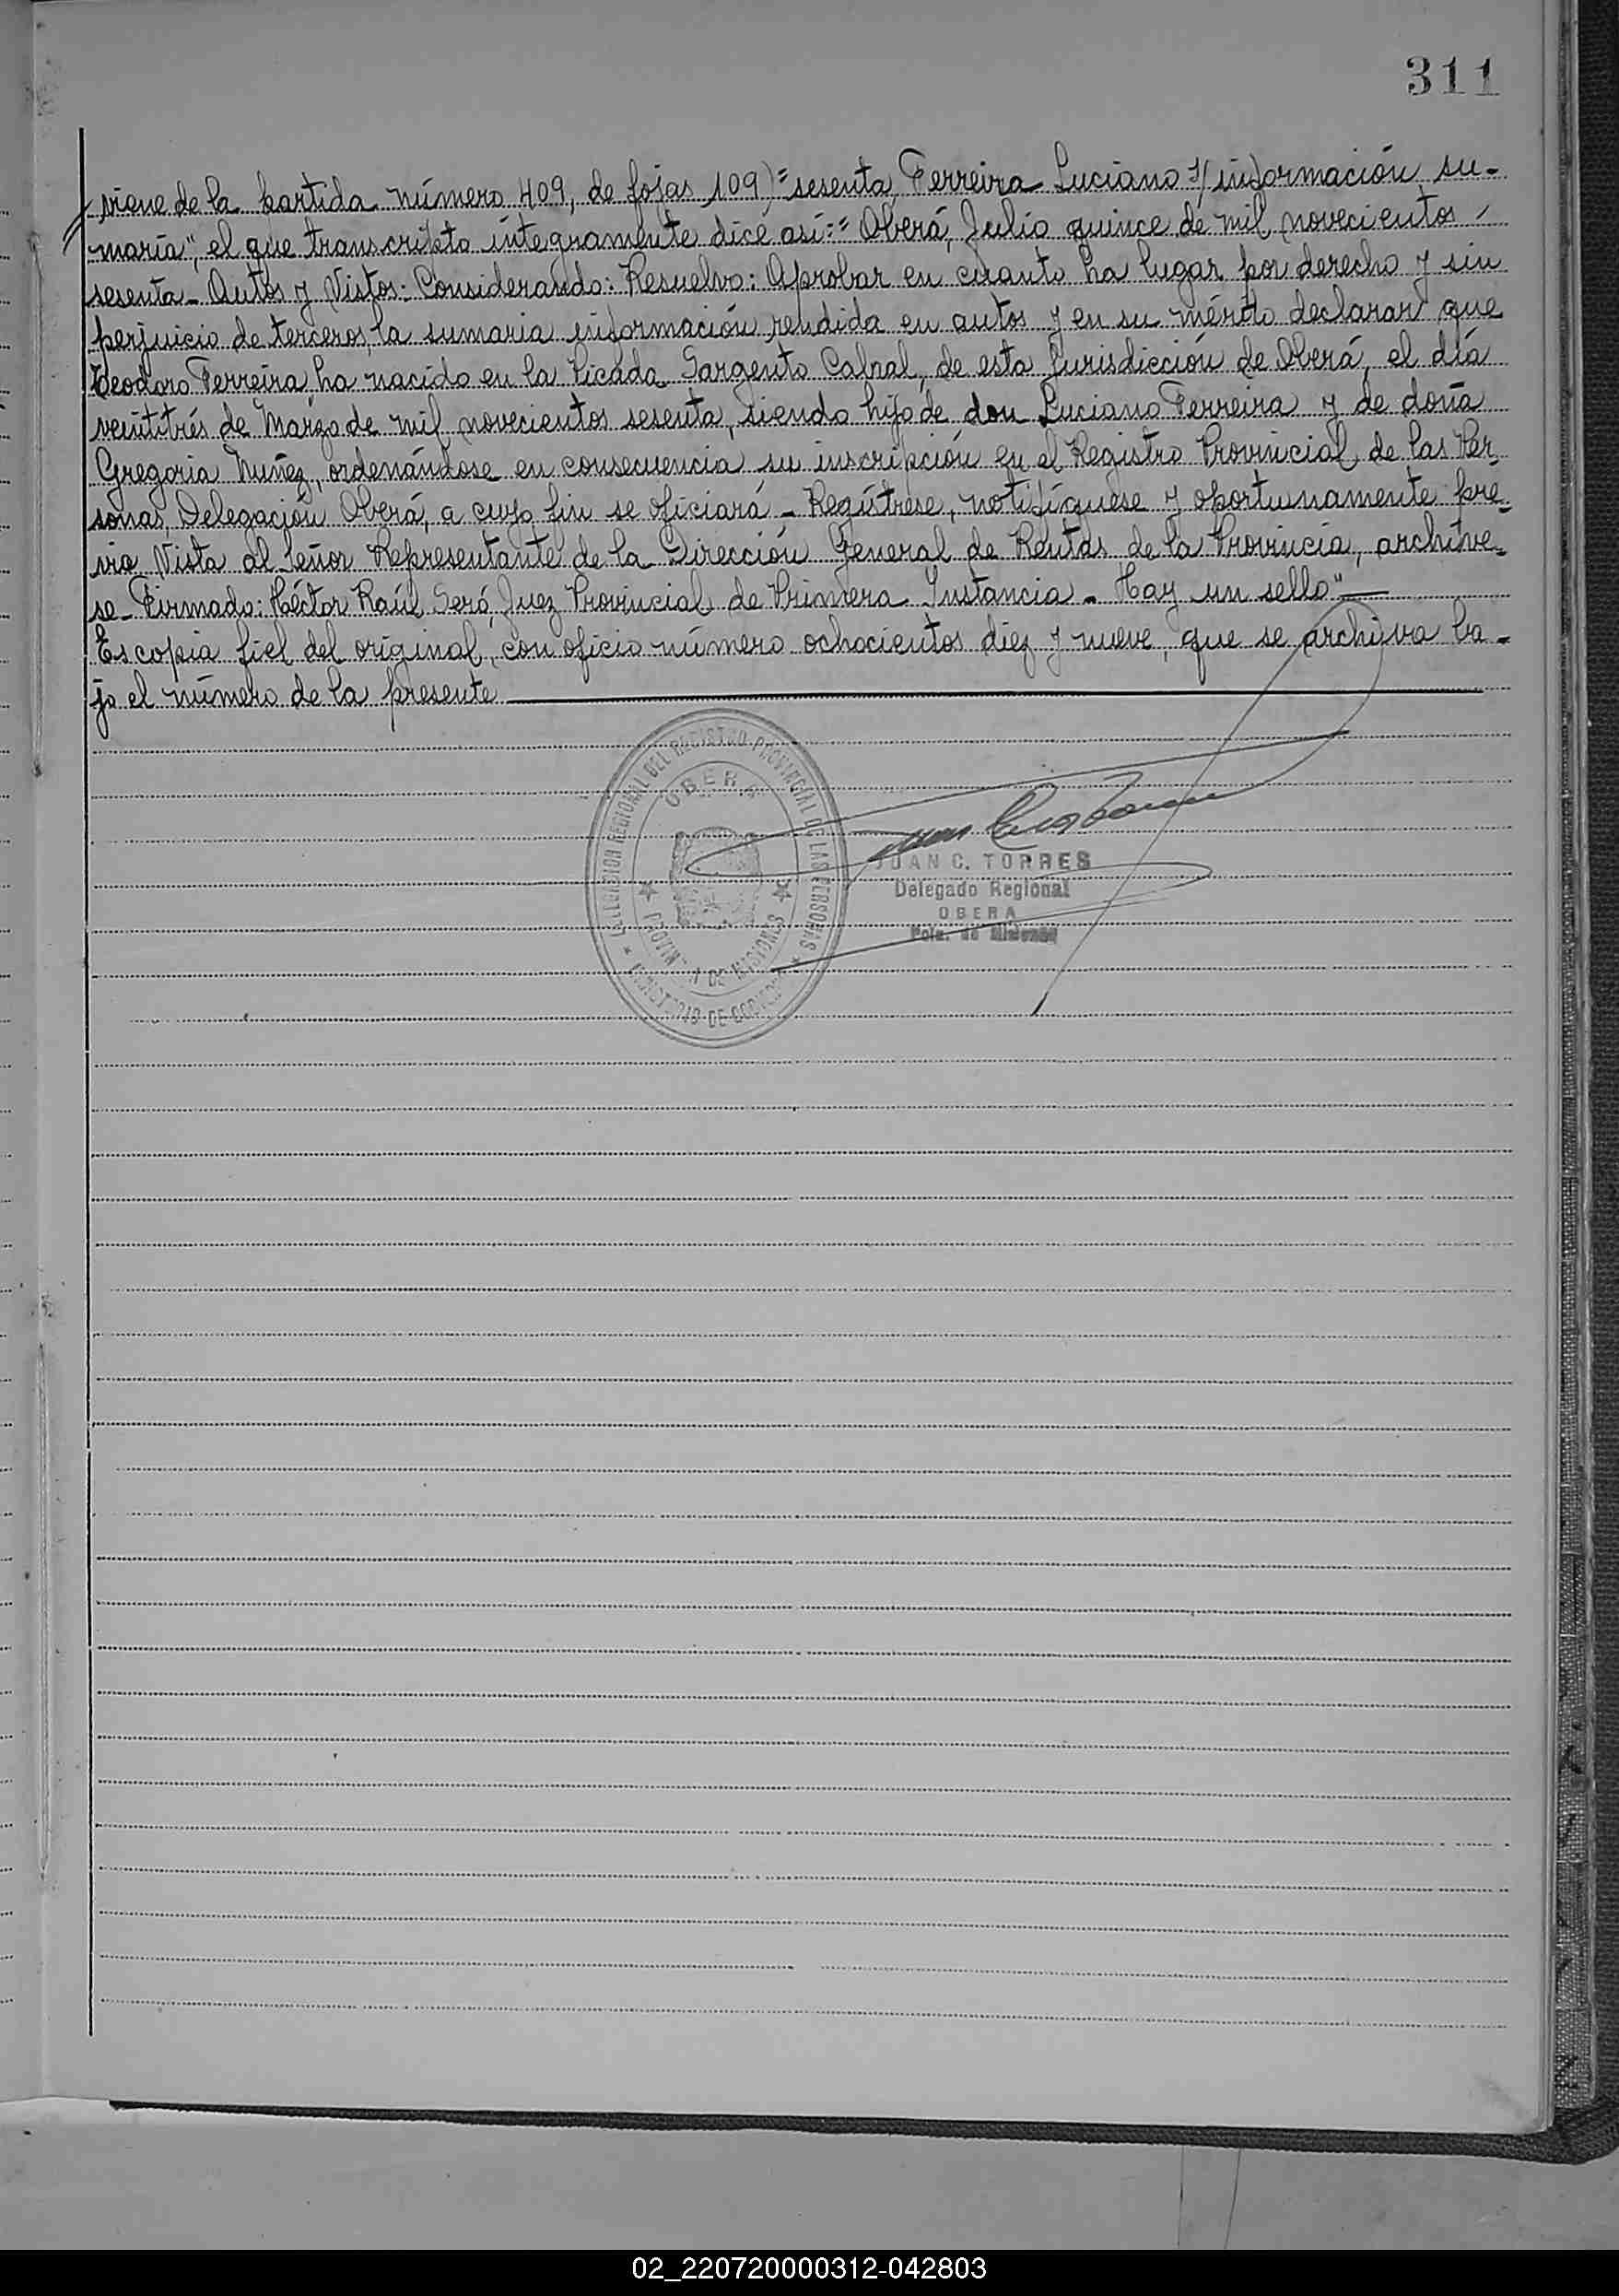 311
viene de la partida número 409, de fojas 109)=sesenta, Ferreira Luciano s/información su-
maria", el que transcripto íntegramente dice así:= Oberá, Julio quince de mil novecientos
sesenta.- Autos y Vistos: Considerando: Resuelvo: Aprobar en cuanto ha lugar por derecho y sin
perjuicio de terceros, la sumaria información rendida en autos y en su mérito declarar que
Teodoro Ferreira ha nacido en la Picada Sargento Cabral, de esta Jurisdicción de Oberá, el día
veintitrés de Marzo de mil novecientos sesenta, siendo hijo de don Luciano Ferreira y de doña
Gregoria Nuñez, ordenándose en consecuencia su inscripción en el Registro Provincial de las Per-
sonas, Delegación Oberá, a cuyo fin se oficiará.- Regístrese, notifíquese y oportunamente pre-
via Vista al Señor Representante de la Dirección General de Rentas de la Provincia, archíve-
se.- Firmado: Héctor Raúl Seró, Juez Provincial de Primera Instancia.- Hay un sello"
Es copia fiel del original, con oficio número ochocientos diez y nueve, que se archiva ba-
jo el número de la presente
DELEGACION REGIONAL DEL REGISTRO PROVINCIAL DE LAS PERSONAS
OBERA
PROVINCIA DE MISIONES
MINISTERIO DE GOBIERNO
JUAN C. TORRES
Delegado Regional
OBERA
Pcia. de Misiones
02_220720000312-042803